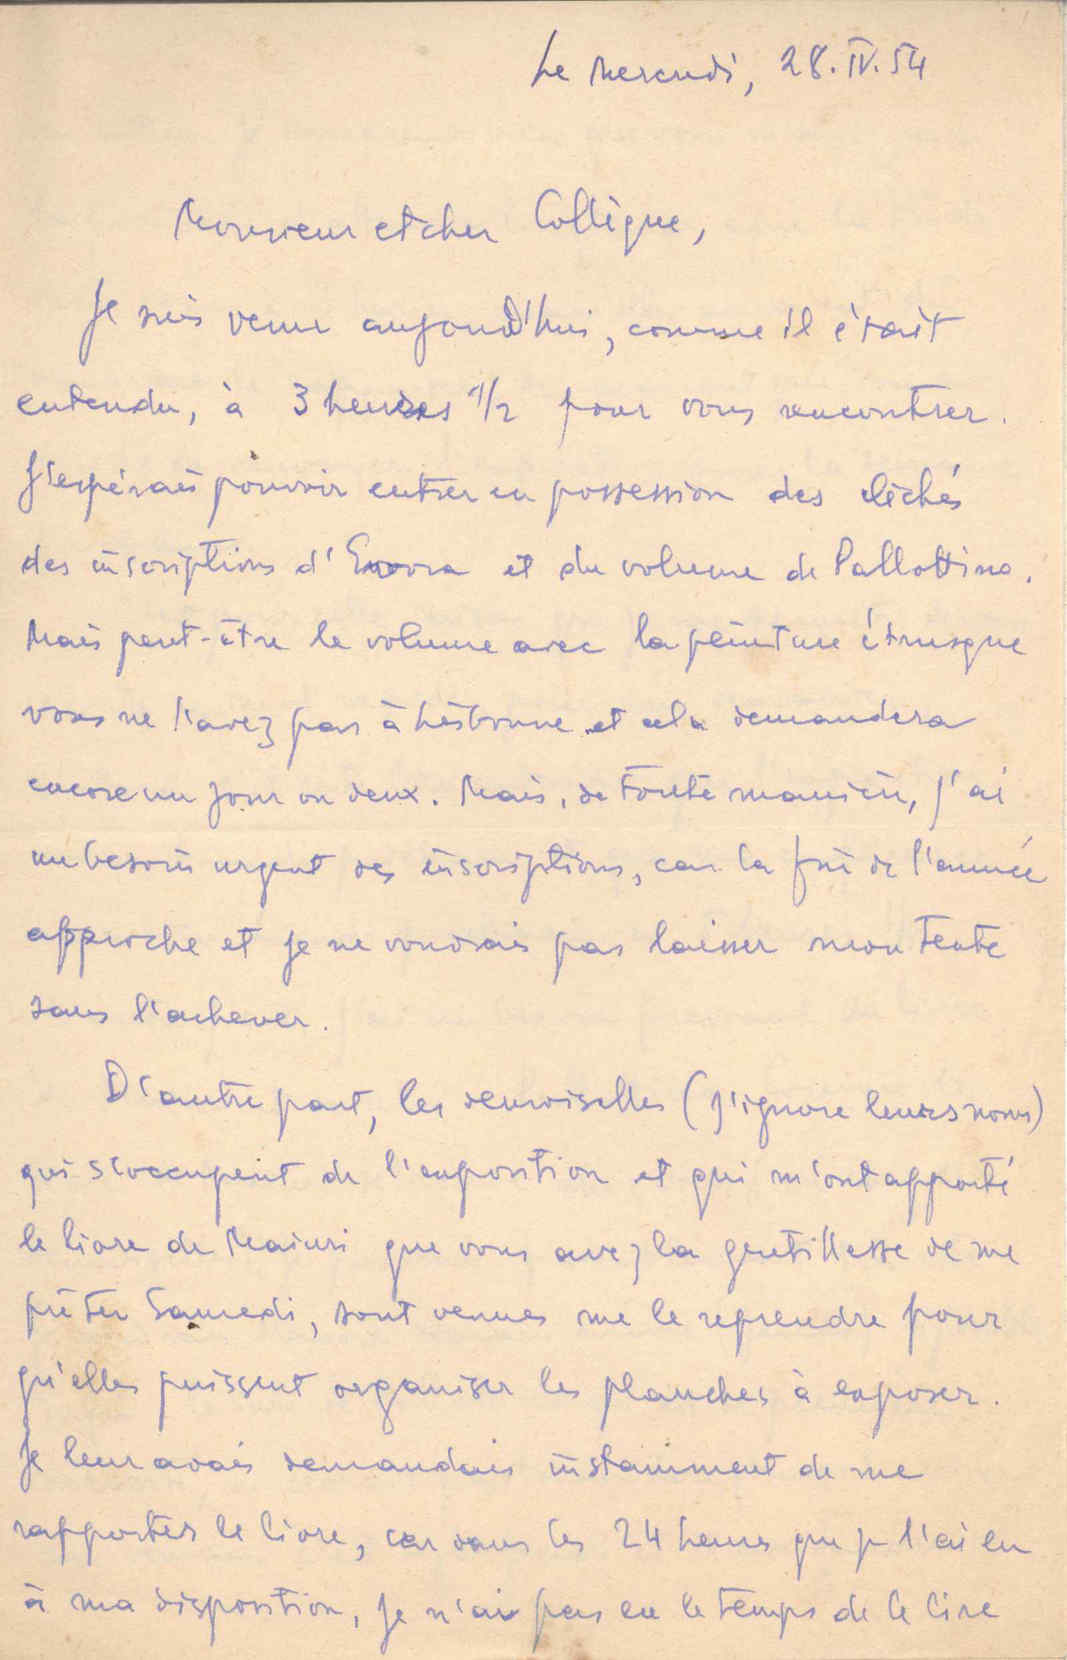 Le Mercredi, 28.IV.54
Monsieur et cher Collègue,
Je suis venu aujourd'hui, comme il était
entendu, à 3 heures 1/2 pour vous rencontrer.
J'espérais pouvoir entrer en possession des clichés
des inscriptions d'Evora et du volume de Pallottino.
Mais peut-être le volume avec la peinture étrusque
vous ne l'avez pas à Lisbonne et cela demandera
encore un jour ou deux. Mais, de toute manière, j'ai
un besoin urgent des inscriptions, car la fin de l'année
approche et je ne voudrais pas laisser mon texte
sans l'achever.
D'autre part, les demoiselles (j'ignore leurs noms)
qui s'occupent de l'exposition et qui m'ont apporté
le livre de Maiuri que vous avez la gentillesse de me
prêter Samedi, sont venues me le reprendre pour
qu'elles puissent organiser les planches à exposer.
Je leur avais demandais instamment de me
rapporter le livre, car dans les 24 heures que je l'ai eu
à ma disposition, je n'ai pas eu le temps de le lire